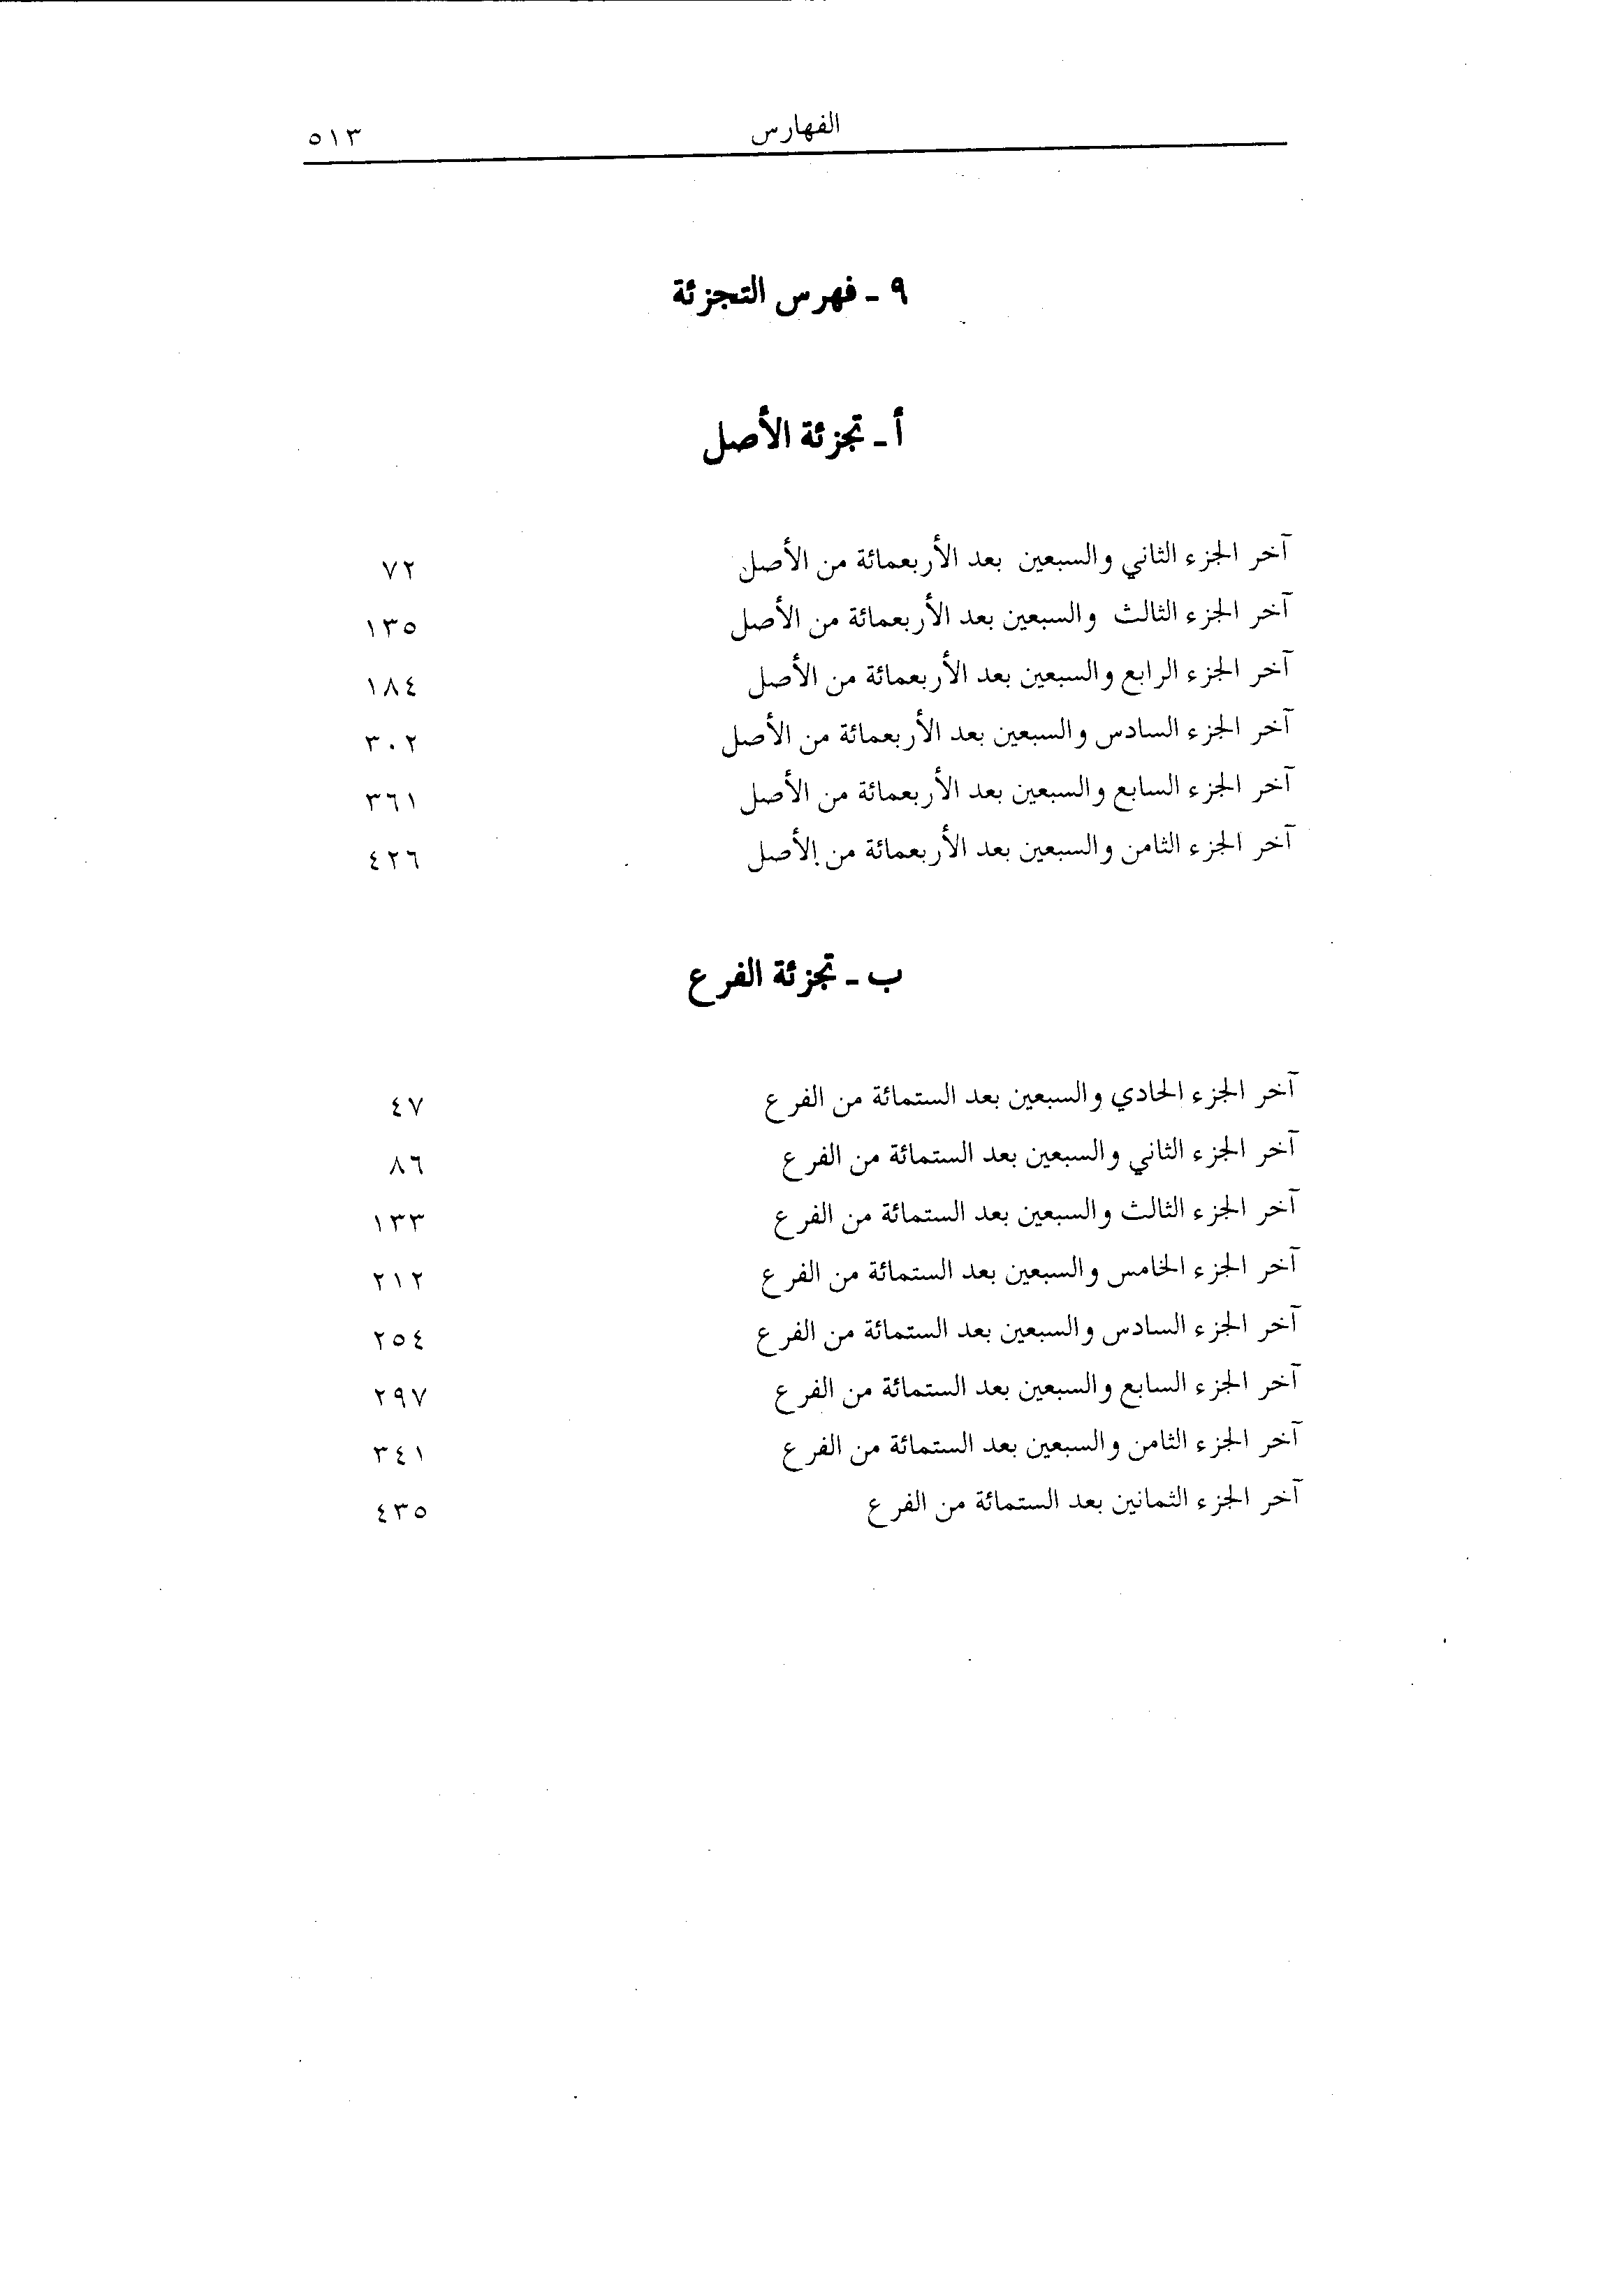 الفهارس ٥١٣
٩ ـ فهرس التجزئة
أ ـ تجزئة الأصل
آخر الجزء الثاني والسبعين بعد الأربعمائة من الأصل ٧٢
آخر الجزء الثالث والسبعين بعد الأربعمائة من الأصل ١٣٥
آخر الجزء الرابع والسبعين بعد الأربعمائة من الأصل ١٨٤
آخر الجزء السادس والسبعين بعد الأربعمائة من الأصل ٣٠٢
آخر الجزء السابع والسبعين بعد الأربعمائة من الأصل ٣٦١
آخر الجزء الثامن والسبعين بعد الأربعمائة من الأصل ٤٢٦
ب ـ تجزئة الفرع
آخر الجزء الحادي والسبعين بعد الستمائة من الفرع ٤٧
آخر الجزء الثاني والسبعين بعد الستمائة من الفرع ٨٦
آخر الجزء الثالث والسبعين بعد الستمائة من الفرع ١٣٣
آخر الجزء الخامس والسبعين بعد الستمائة من الفرع ٢١٢
آخر الجزء السادس والسبعين بعد الستمائة من الفرع ٢٥٤
آخر الجزء السابع والسبعين بعد الستمائة من الفرع ٢٩٧
آخر الجزء الثامن والسبعين بعد الستمائة من الفرع ٣٤١
آخر الجزء الثمانين بعد الستمائة من الفرع ٤٣٥